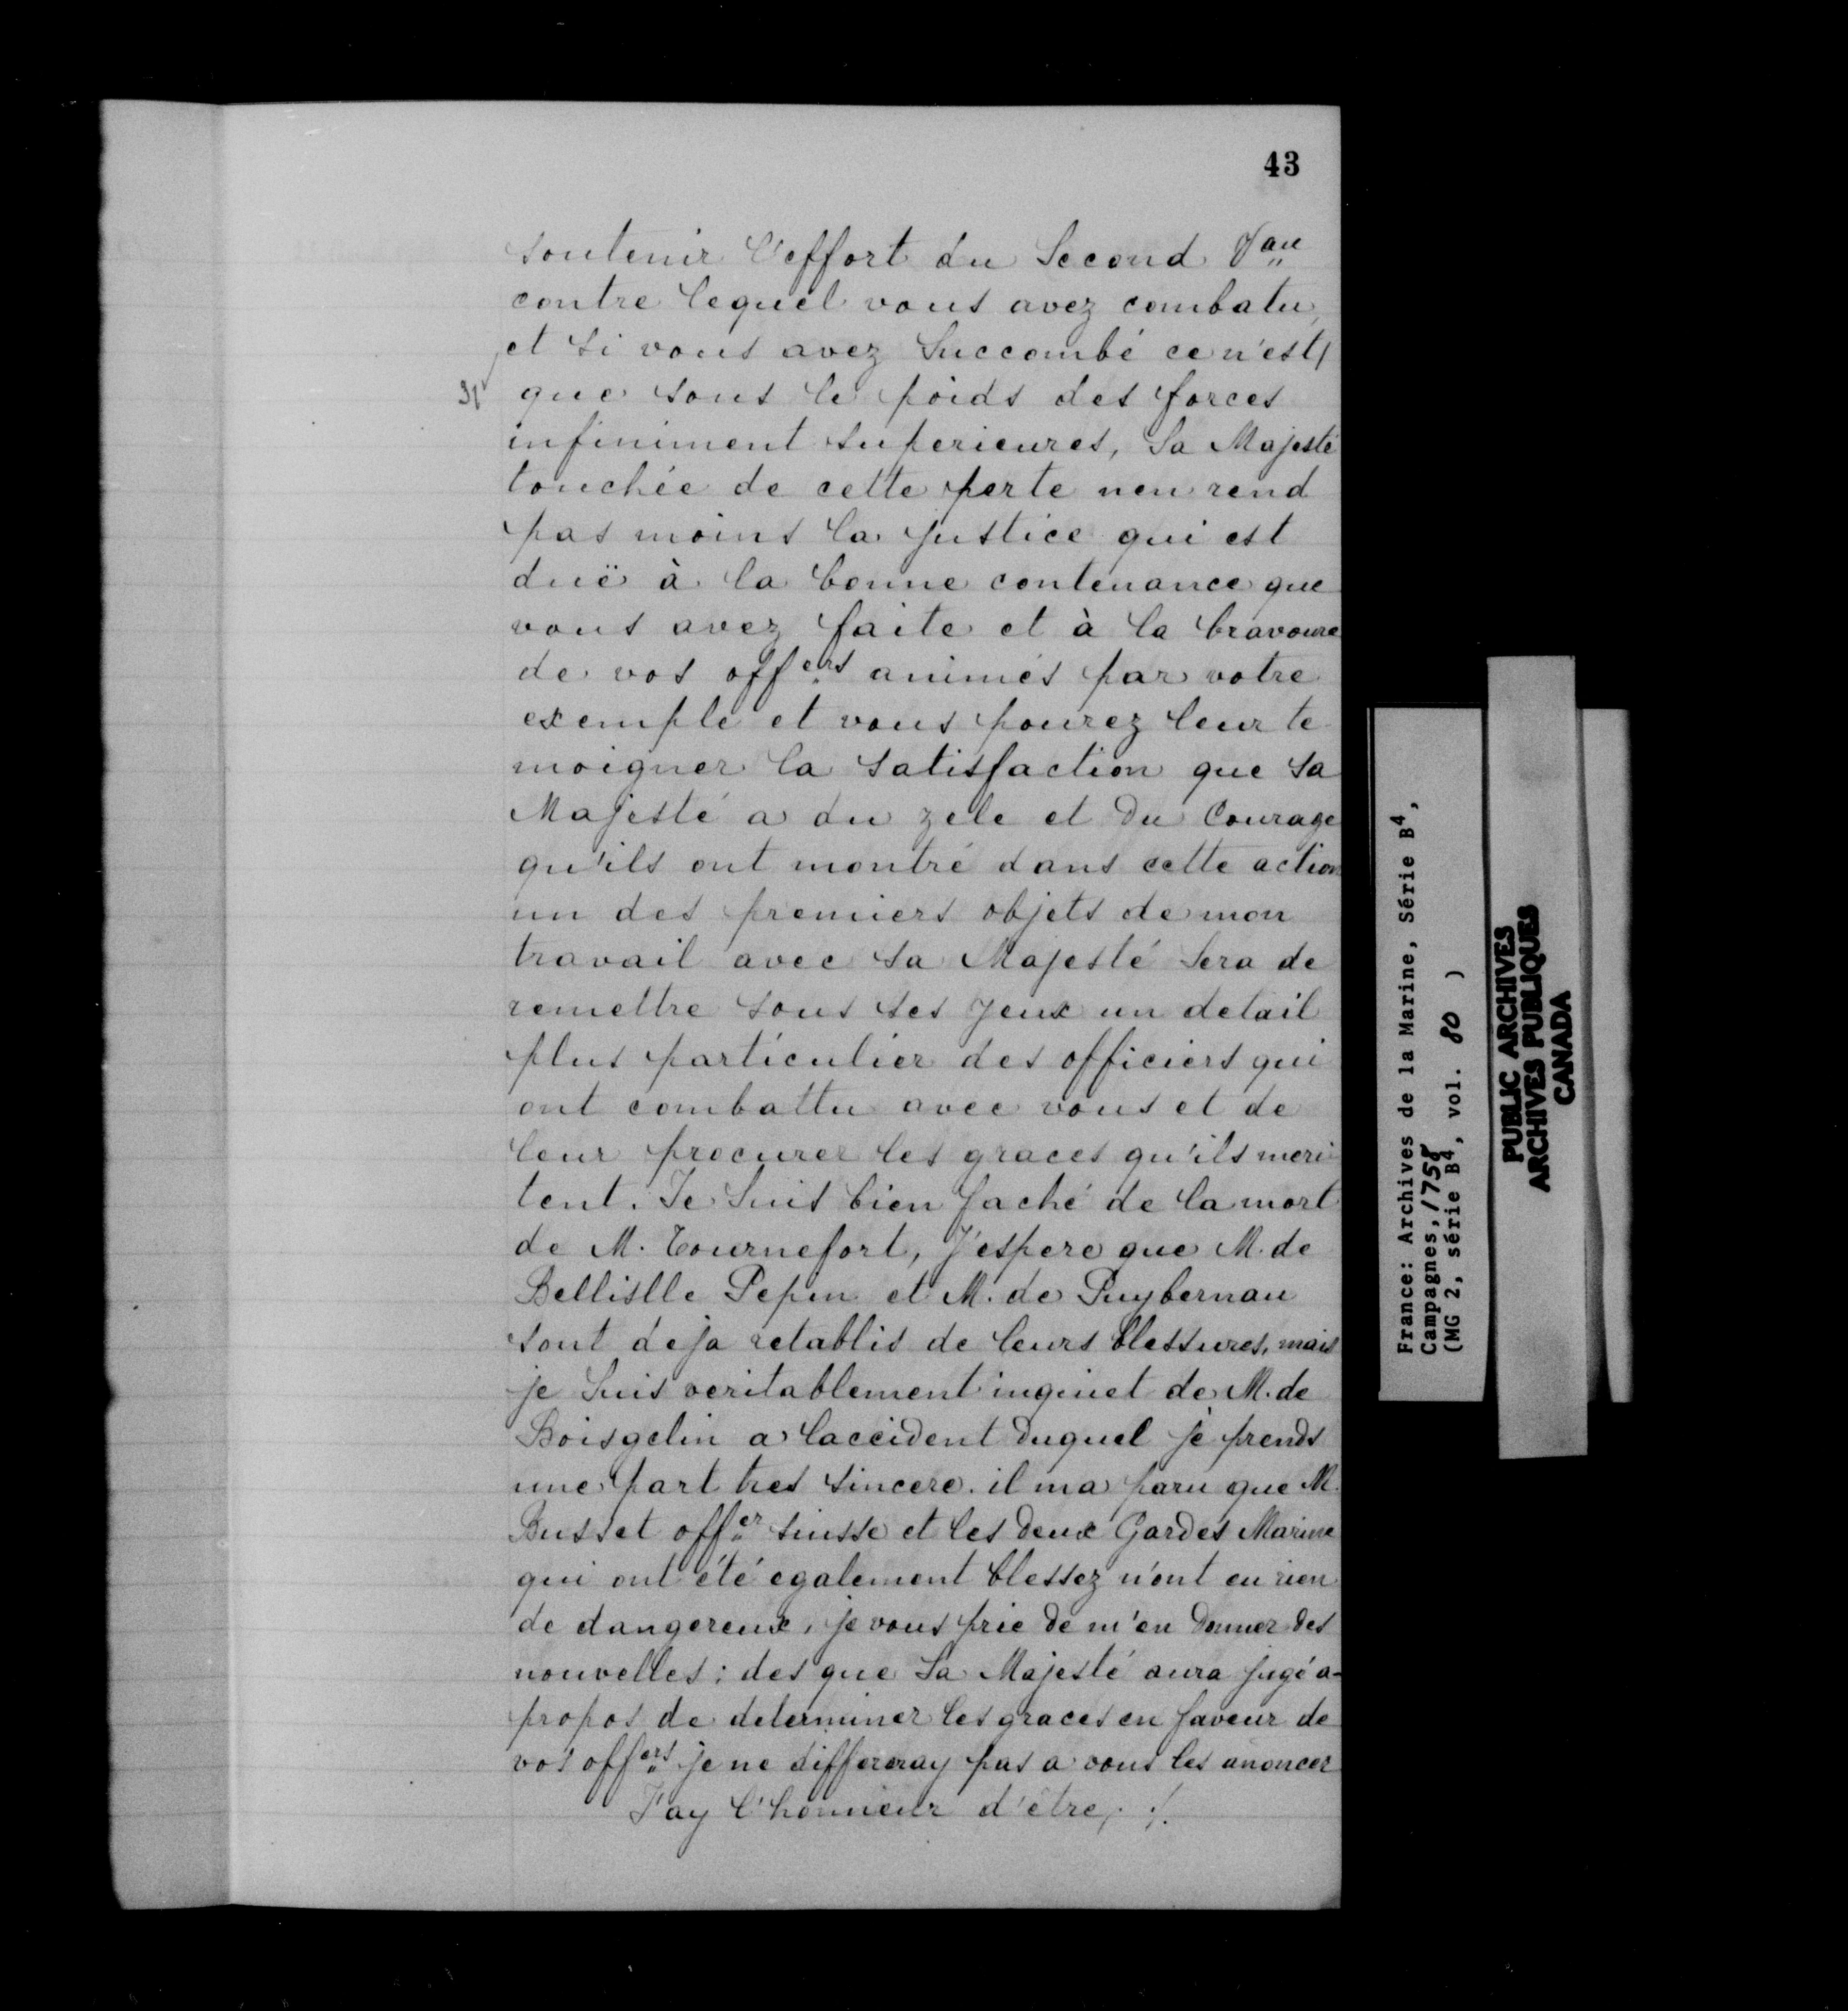 43
soutenir l'effort du Second Vau
contre lequel vous avez combatu,
et si vous avez Succombé ce n'est
que sous le poids des forces
infiniment superieures, Sa Majesté
touchée de cette perte nen rend
pas moins la justice qui est
duë à la bonne contenance que
vous avez faite et à la bravoure
de vos offers animés par votre
exemple et vous pourez leur te
moigner la satisfaction que sa
Majesté a du zele et du Courage
qu'ils ont montré dans cette action
un des premiers objets de mon
travail avec sa Majesté Sera de
remettre sous ses yeux un detail
plus particulier des officiers qui
ont combattu avec vous et de
leur procurer les graces qu'ils meri
tent. Je Suis bien faché de la mort
de M. Tournefort, J'espere que M. de
Bellislle Pepin et M. de Puybernau
sont deja retablis de leurs blessures, mais
je Suis veritablement inquiet de M. de
Boisgelin a laccident duquel je prends
une part tres sincere. il ma paru que M.
Busset offer suisse et les deux Gardes Marine
qui ont été egalement blessez n'ont eu rien
de dangereux, je vous prie de m'en donner des
nouvelles; des que Sa Majesté aura jugé a-
propos de determiner les graces en faveur de
vos offers je ne differeray pas a vous les anoncer
J'ay l'honneur d'être, ./.
France: Archives de la Marine, Série B4,
Campagnes, 1758
(MG 2, série B4, vol. 80 )
PUBLIC ARCHIVES
ARCHIVES PUBLIQUES
CANADA